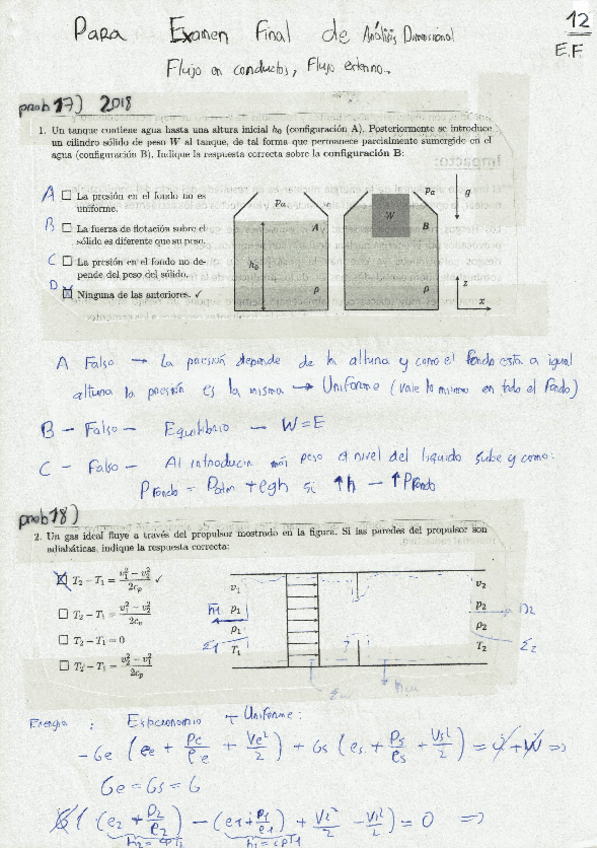 PARA Examen Final de Análisis Dimensional
12
E.F
Flujo en conductos, Flujo externo.
prob 17) 2018
1. Un tanque contiene agua hasta una altura inicial h₀ (configuración A). Posteriormente se introduce
un cilindro sólido de peso W al tanque, de tal forma que permanece parcialmente sumergido en el
agua (configuración B). Indique la respuesta correcta sobre la configuración B:
A □ La presión en el fondo no es
uniforme.
B □ La fuerza de flotación sobre el
sólido es diferente que su peso.
C □ La presión en el fondo no de-
pende del peso del sólido.
D ☒ Ninguna de las anteriores. ✓
Pa
A
h₀
ρ
Pa
W
B
ρ
g
z
x
A Falso → La presión depende de la altura y como el fondo está a igual
altura la presión es la misma → Uniforme (vale lo mismo en todo el fondo)
B - Falso - Equilibrio - W = E
C - Falso - Al introducir más peso el nivel del líquido sube y como:
PFondo = Patm + ρgh si ↑h - ↑PFondo
prob 18)
2. Un gas ideal fluye a través del propulsor mostrado en la figura. Si las paredes del propulsor son
adiabáticas, indique la respuesta correcta:
☒ T₂ − T₁ = (v₁² − v₂²)/2cₚ ✓
□ T₂ − T₁ = (v₁² − v₂²)/2cᵥ
□ T₂ − T₁ = 0
□ T₂ − T₁ = (v₂² − v₁²)/2cₚ
v₁
p₁
ρ₁
T₁
Σ1
v₂
p₂
ρ₂
T₂
n2
Σ2
Energía : Estacionario + Uniforme:
-Ge (ee + Pe/ρe + Ve²/2) + Gs (es + Ps/ρs + Vs²/2) = Q + W ⇒
Ge = Gs = G
G ( (e2 + P2/ρ2) - (e1 + P1/ρ1) + V2²/2 - V1²/2) = 0 ⇒
h2 = cpT2 h1 = cpT1